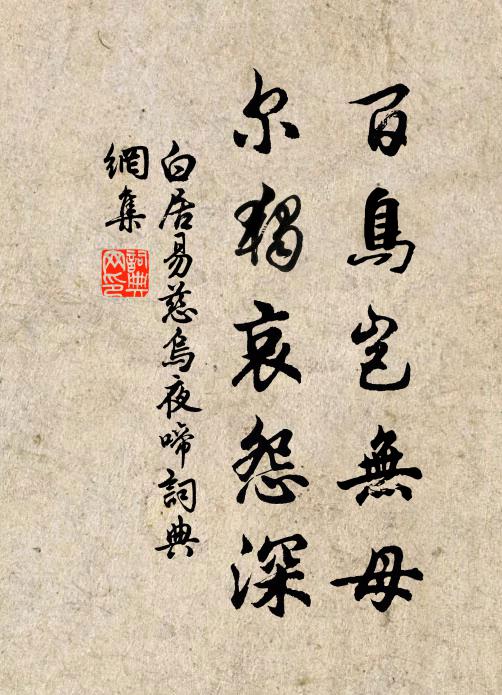 百鳥豈無母
尔獨哀怨深
白居易慈烏夜啼詞典
網集
詞典
网印